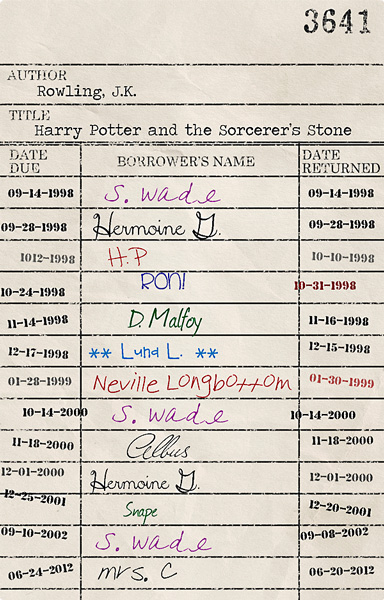 3641
AUTHOR
Rowling, J.K.
TITLE
Harry Potter and the Sorcerer's Stone
DATE DUE BORROWER'S NAME DATE RETURNED
09-14-1998 S. Wade 09-14-1998
09-28-1998 Hermoine G. 09-28-1998
1012-1998 H.P 10-10-1998
10-24-1998 RON! 10-31-1998
11-14-1998 D. Malfoy 11-16-1998
12-17-1998 ** Luna L. ** 12-15-1998
01-28-1999 Neville Longbottom 01-30-1999
10-14-2000 S. Wade 10-14-2000
11-18-2000 Albus 11-18-2000
12-01-2000 Hermoine G. 12-01-2000
12-25-2001 Snape 12-20-2001
09-10-2002 S. Wade 09-08-2002
06-24-2012 Mrs. C 06-20-2012